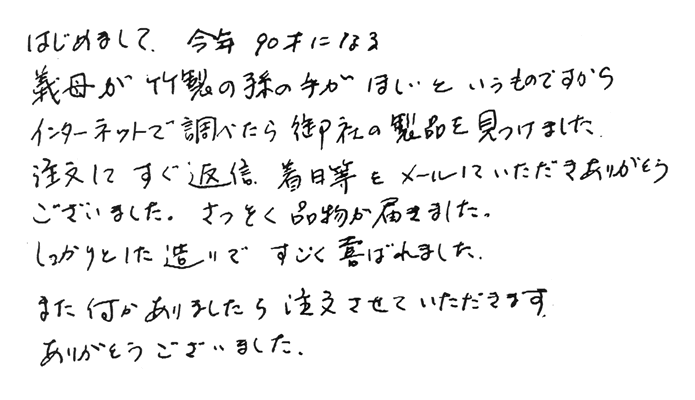 はじめまして、今年90才になる
義母が竹製の孫の手がほしいというものですから
インターネットで調べたら御社の製品を見つけました。
注文してすぐ返信、着日等をメールしていただきありがとう
ございました。さっそく品物が届きました。
しっかりとした造りですごく喜ばれました。
また何かありましたら注文させていただきます。
ありがとうございました。